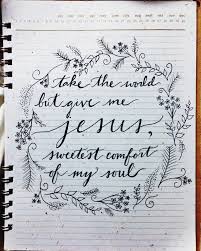 take the world
but give me
Jesus,
sweetest comfort
of my soul